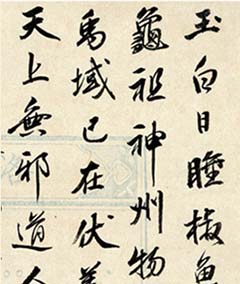 玉白日睡椒魚
龜祖神州物
禹域已在伏羲
天上無邪道人